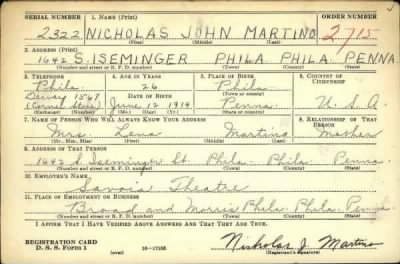 SERIAL NUMBER 1. NAME (Print) ORDER NUMBER
2322 NICHOLAS JOHN MARTINO 2715
(First) (Middle) (Last)
2. ADDRESS (Print)
1642 S. ISEMINGER PHILA. PHILA. PENNA.
(Number and street or R. F. D. number) (Town) (County) (State)
3. TELEPHONE 4. AGE IN YEARS 5. PLACE OF BIRTH 6. COUNTRY OF CITIZENSHIP
Phila. 26 Phila.
DATE OF BIRTH (Town or county)
June 12 1914 Penna. U. S. A.
(Exchange) (Number) (Mo.) (Day) (Yr.) (State or country)
7. NAME OF PERSON WHO WILL ALWAYS KNOW YOUR ADDRESS 8. RELATIONSHIP OF THAT PERSON
Mrs. Lena Martino Mother
(Mr., Mrs., Miss) (First) (Middle) (Last)
9. ADDRESS OF THAT PERSON
1642 S. Iseminger St. Phila. Phila. Penna.
(Number and street or R. F. D. number) (Town) (County) (State)
10. EMPLOYER'S NAME
Savoia Theatre
11. PLACE OF EMPLOYMENT OR BUSINESS
Broad and Morris Phila. Phila. Penna.
(Number and street or R. F. D. number) (Town) (County) (State)
I AFFIRM THAT I HAVE VERIFIED ABOVE ANSWERS AND THAT THEY ARE TRUE.
REGISTRATION CARD
D. S. S. Form 1 (over) 16—17105 Nicholas J. Martino
(Registrant's signature)